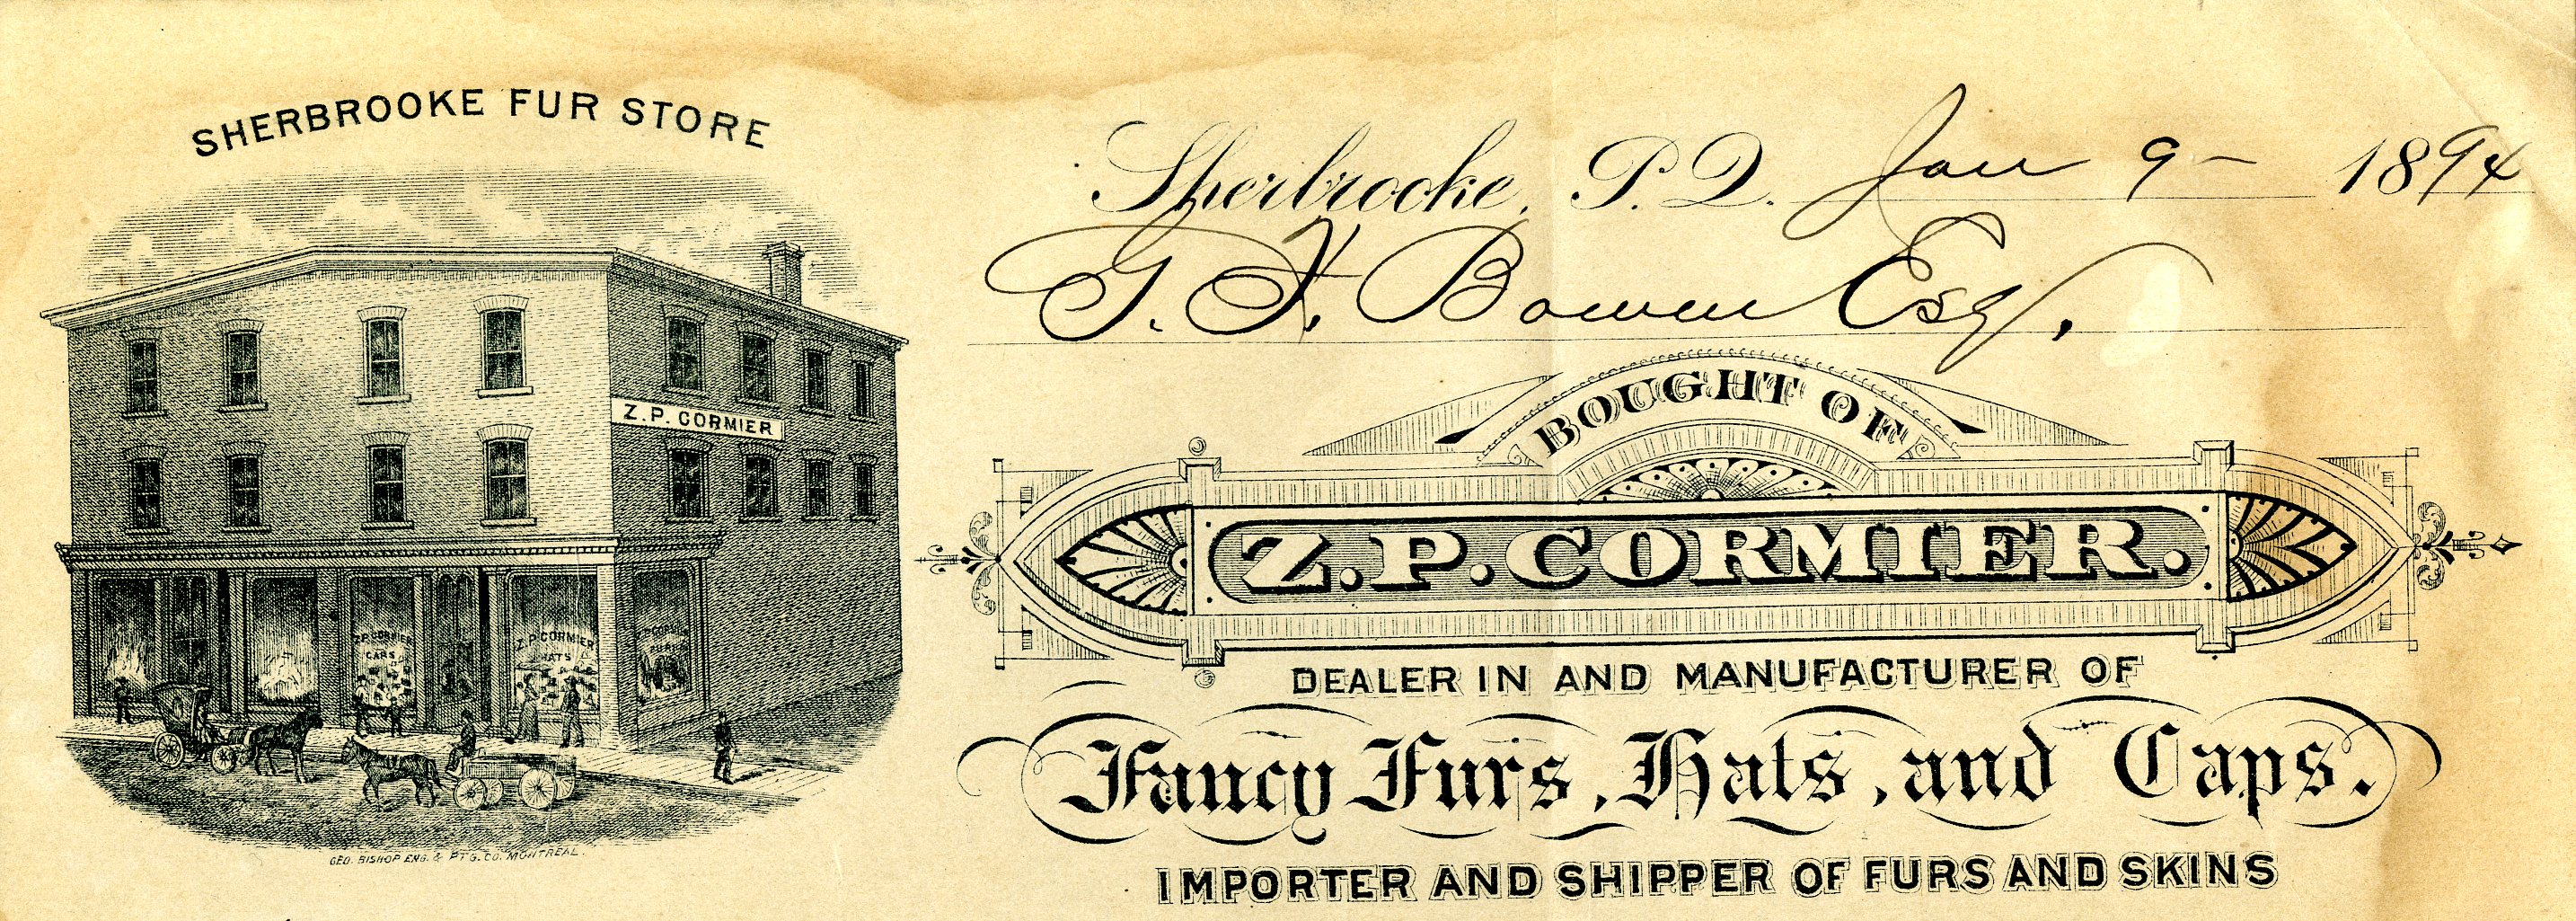 SHERBROOKE FUR STORE
Z.P. CORMIER
Z.P. CORMIER
Z.P. CORMIER
HATS
GEO. BISHOP ENG. & PTG. CO. MONTREAL.
Sherbrooke, P. Q. Jan 9 - 1894
G. F. Bowen Esq.
BOUGHT OF
Z.P. CORMIER.
DEALER IN AND MANUFACTURER OF
Fancy Furs, Hats, and Caps.
IMPORTER AND SHIPPER OF FURS AND SKINS